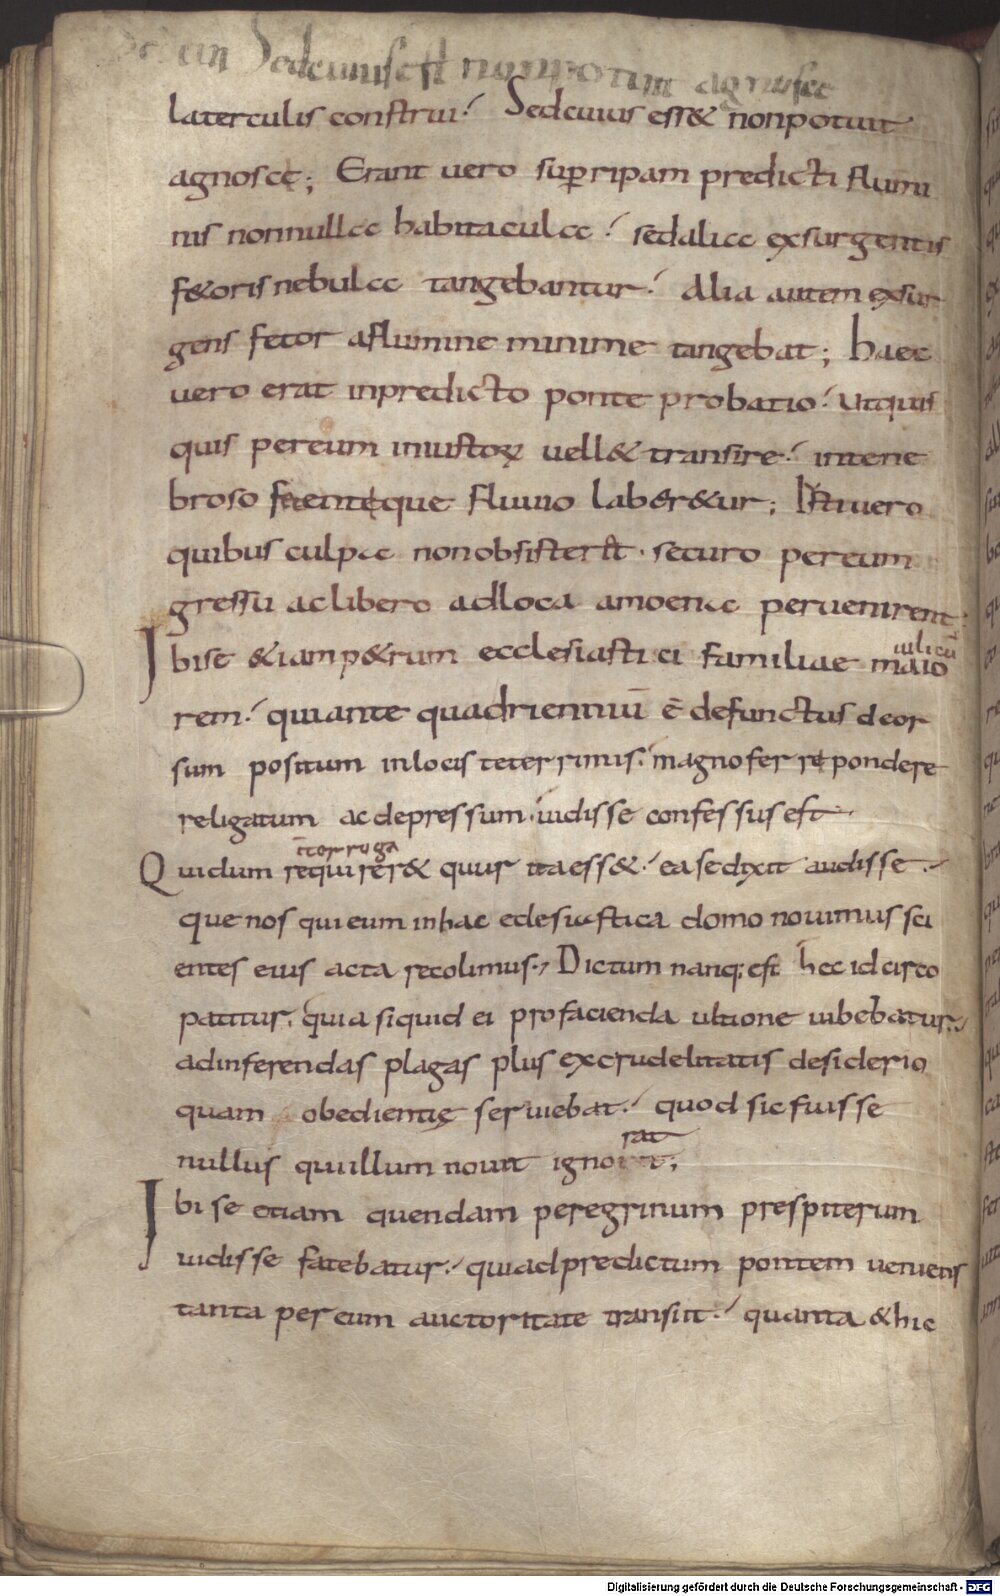 Sed cuius est non potuit agnosce
laterculis construi. Sed cuius ess& non potuit
agnosce; Erant uero sup ripam predicti flumi
nis nonnulla habitacula. sed alia exsurgentis
f&oris nebula tangebantur. Alia autem exsur
gens fetor a flumine minime tangebat; haec
uero erat in predicto ponte probatio. ut quis
quis per eum iniustoꝝ uell& transire. in tene
broso faetenteque fluuio laberetur; Isti uero
quibus culpa non obsister&. securo per eum
gressu ac libero ad loca amoena peruenirent.
Ibi se &iam p&rum ecclesiastici familiae maio
rem. qui ante quadrienniū ē defunctus deor
sum positum in locis teterrimis. magno ferri pondere
religatum ac depressum uidisse confessus est.
itorroga
Qui dum requirer& quur ita ess&. ea se dixit audisse.
que nos qui eum in hac eclesiastica domo nouimus sci
entes eius acta recolimus. Dictum nanq; est hec idcirco
patitur. quia siquid ei pro facienda ultione iubebatur.
ad inferendas plagas plus excrudelitatis desiderio
quam obedientię seruiebat. quod sic fuisse
rat
nullus qui illum nouit ignorat;
Ibi se etiam quendam peregrinum prespiterum
uidisse fatebatur. qui ad predictum pontem ueniens
tanta per eum auctoritate transiit. quanta & hic
Digitalisierung gefördert durch die Deutsche Forschungsgemeinschaft - DFG